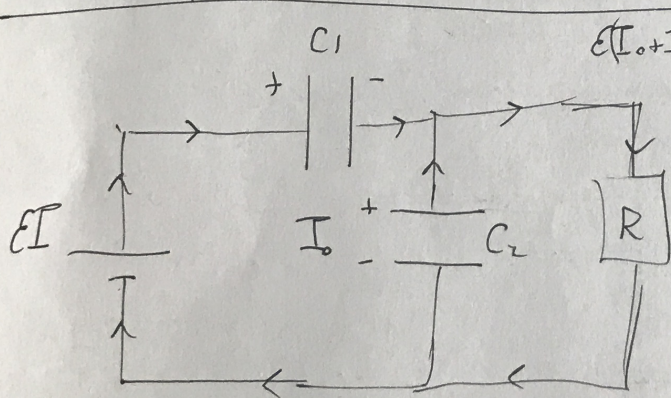 C1
ε(I₀+I
+ -
εI
I₀
+
-
C₂
R